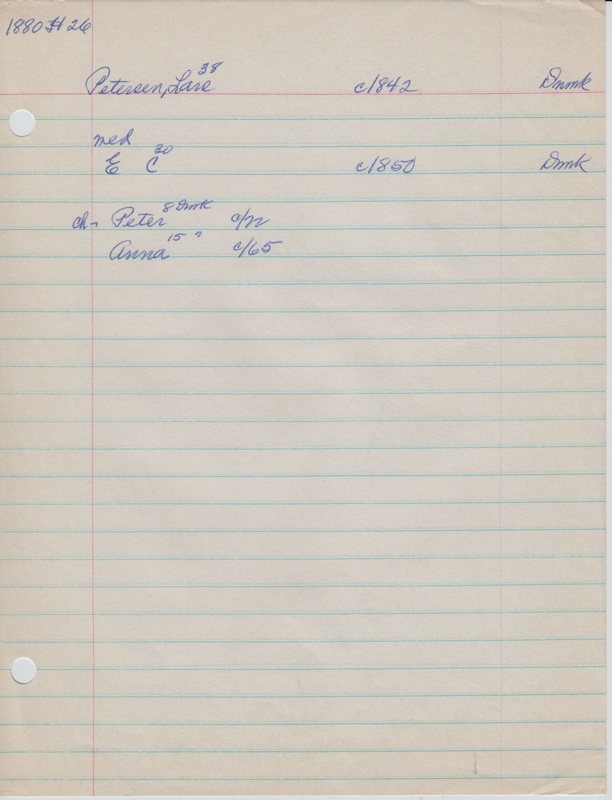 1880 # 26
Petersen, Lars 38 c/1842 Dnmk
med
E C 30 c/1850 Dmk
ch- Peter 8 Dmk c/72
Anna 15 " c/65